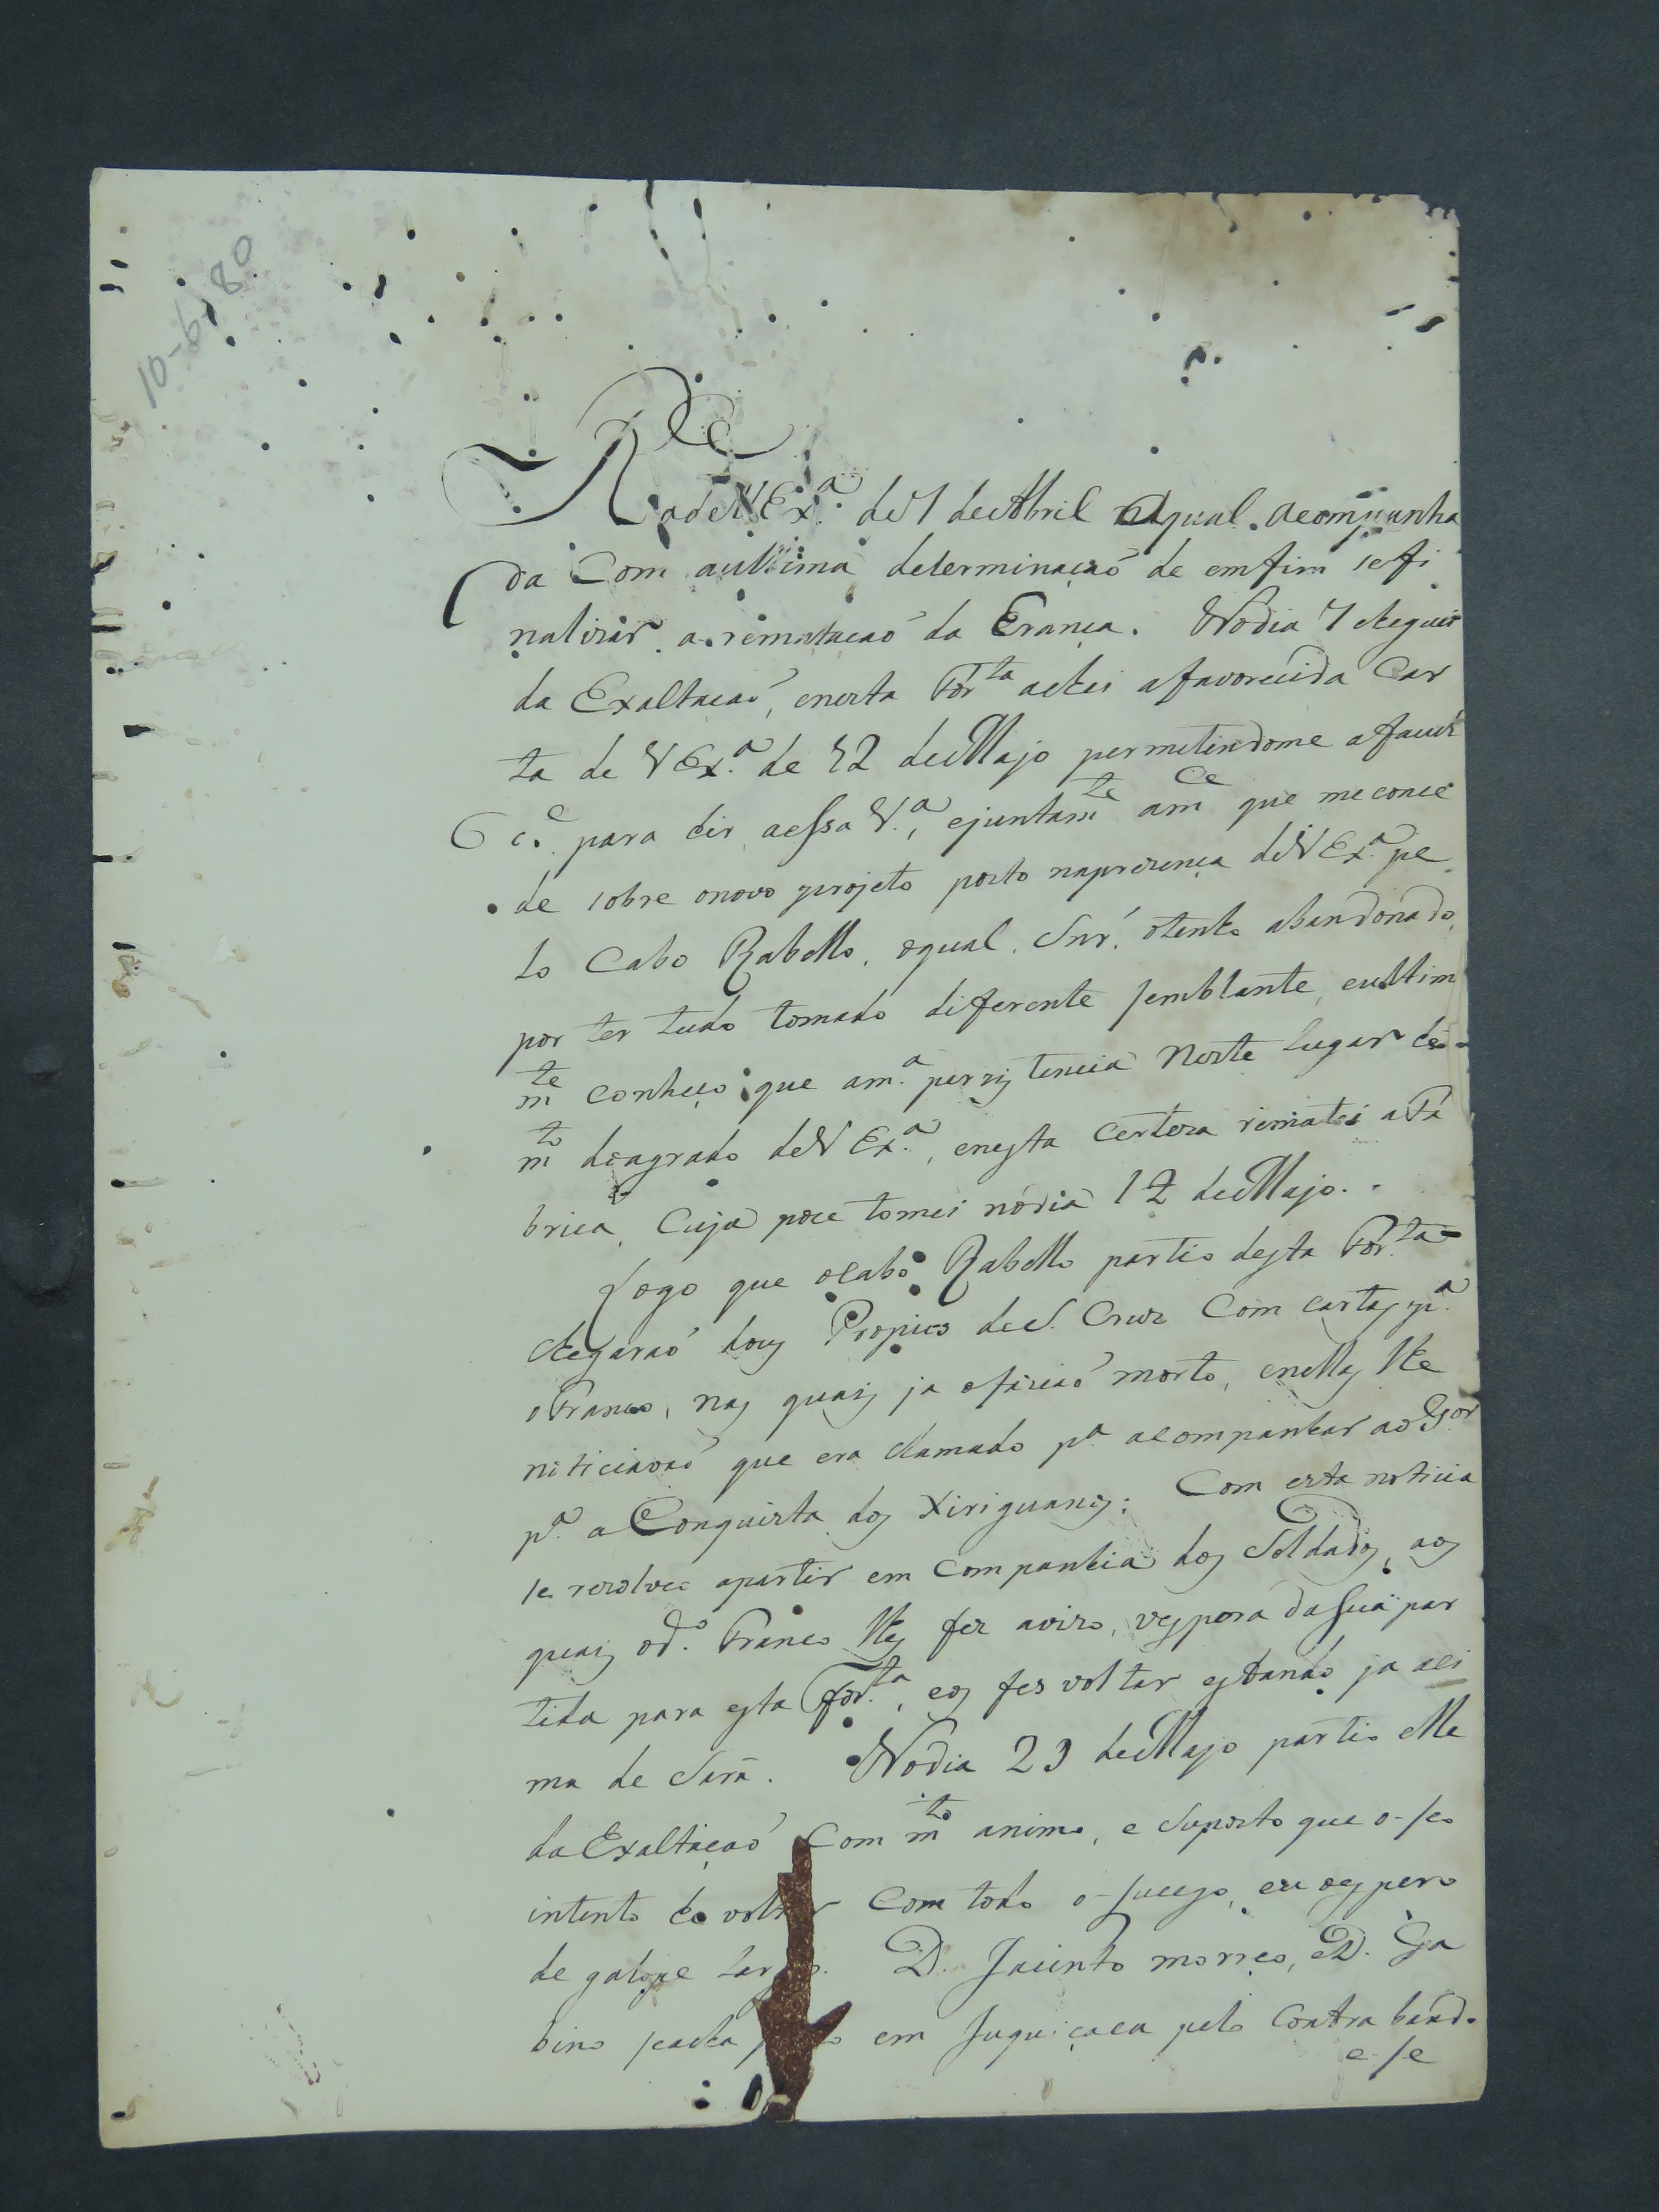 10-6-80
R.ce
a de V Ex.a de 7 de Abril a qual acompanha
da Com aultima determinaçaõ de emfim sefi
nalizár a rematacaõ da Erança. Nodia 7 cheguei
da Exaltacaõ, enesta For.ta achei a favorecida Car
ta de V Ex.a de 22 de Majo permetindome a facul
c.e para hir aessa V.a, ejuntam.te a m.ce que meconce
de sobre onovo projeto posto naprezença de V Ex.a pe
lo Cabo Rabello, oqual Snr. otenho abandonado,
por ter tudo tomado diferente semblante, eultim
m.te conheço que am.a perzistencia Neste lugar hé
m.to deagrado de V Ex.a, enesta Certeza rimatei a Fá
brica, Cuja poce tomei nodia 12 de Majo.
Logo que oCabo Rabello partio desta For.ta
chegaraõ dous Propios de S. Cruz Com cartas p.a
o Franco, nas quais ja ofaziaõ morto, enellas lhe
niticiavaõ que era chamado p.a acompanhar ao G.or
p.a a Conquista dos Xiriguanis: Com esta noticia
se rezolveo apartir em Companhia dos Soldados, aos
quais od.o Franco lhes fez avizo, vespora dasua par
tida para esta For.ta, eos fes voltar estando ja aci
ma de Sará. Nodia 23 de Majo partio elle
da Exaltaçaõ Com m.to animo, e Suposto que o seo
intento he voltar Com todo o sucego, eu oespero
de galope largo. D. Jacinto morreo, e D. Ga
bino seacha em Juquiçaca pelo Contra bando
e se